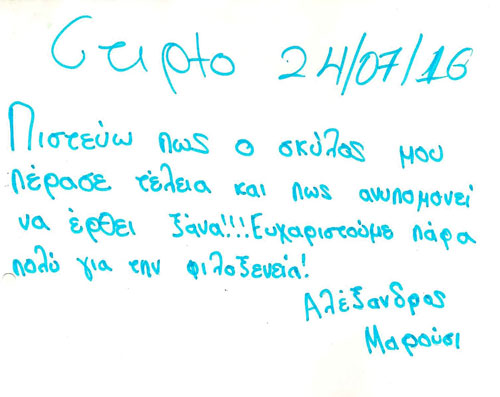 24/07/16
Πιστεύω πως ο σκύλος μου
πέρασε τέλεια και πως ανυπομονεί
να έρθει ξάνα!!! Ευχαριστούμε πάρα
πολύ για την φιλοξενεία!
Αλέξανδρος
Μαρούσι